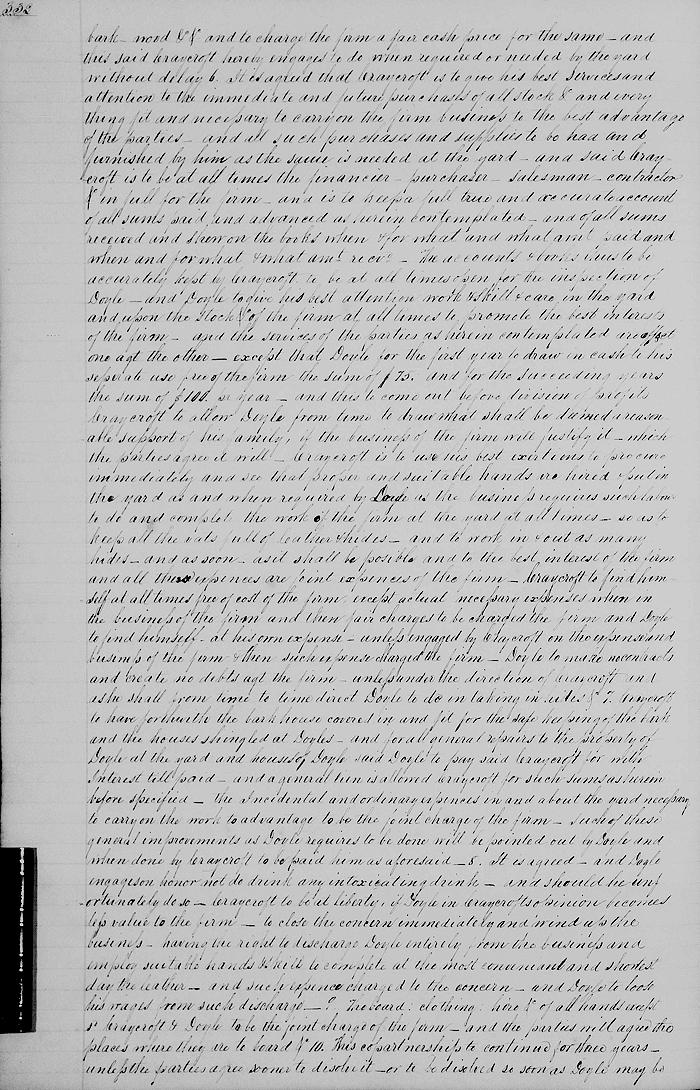 332
bark - wood &c & and to charge the firm a fair cash price for the same - and
this said Craycroft hereby engages to do when required or needed by the yard
without delay 6. It is agreed that Craycroft is to give his best services and
attention to the immediate and future purchases of all stock & and every
thing fit and necessary to carry on the firm business to the best advantage
of the parties - and all such purchases and supplies to be had and
furnished by him as the same is needed at the yard - and said Cray-
croft is to be at all times the financier - purchaser - salesman - contractor
& in full for the firm - and is to keep a full true and accurate account
of all sums paid and advanced as herein contemplated - and of all sums
received and shew on the books when & for what and what amt paid and
when and for what & what amt recd - The accounts & books thus to be
accurately kept by Craycroft to be at all times open for the inspection of
Doyle - and Doyle to give his best attention work & skill & care, in the yard
and upon the stock & of the firm at all times to promote the best interests
of the firm - and the services of the parties as herein contemplated are offset
one agt the other - except that Doyle for the first year to draw in cash to his
seperate use free of the firm the sum of $75. and for the succeeding years
the sum of $100. pr year - and this to come out before division of profits
Craycroft to allow Doyle from time to draw what shall be deemed a reason-
able support of his family, if the business of the firm will justify it - which
the parties agree it will - Craycroft is to use his best exertions to procure
immediately and see that proper and suitable hands are hired & put in
the yard as and when required by as the business requires such labor
to do and complete the work of the firm at the yard at all times - so as to
keep all the vats full of leather & hides - and to work in & out as many
hides - and as soon - as it shall be posible and to the best interest of the firm
and all these expences are joint expences of the firm - Craycroft to find him-
self at all times free of cost of the firm except actual necessary expenses when in
the business of the firm and then fair charges to be charged the firm and Doyle
to find himself at his own expense - unless engaged by Craycroft on the expense and
business of the firm & then such expense charged the firm - Doyle to make no contracts
and create no debts agt the firm - unless under the direction of Craycroft and
as he shall from time to time direct Doyle to do in taking in &c 7. Craycroft
to have forthwith the bark house covered in and fit for the safe keeping of the bark
and the houses shingled at Doyles - and for all general repairs to the property of
Doyle at the yard and houses of Doyle said Doyle to pay said Craycroft for with
Interest till paid - and a general lien is allowed Craycroft for such sums as herein
before specified - the Incidental and ordinary expences in and about the yard necessary
to carry on the work to advantage to be the joint charge of the firm - such of these
general improvements as Doyle requires to be done will be pointed out by Doyle and
when done by Craycroft to be paid him as aforesaid - 8. It is agreed - and Doyle
engages on honor not do drink any intoxicating drink - and should he unf
ortunately do so - Craycroft to be at liberty, if Doyle in Craycrofts opinion becomes
less value to the firm - to close the concern immediately and wind up the
business - having the right to discharge Doyle entirely from the business and
employ suitable hands & skill to complete at the most convenient and shortest
day the leather - and such expence charged to the concern - and Doyle to lose
his wages from such discharge - 9 The board: clothing: hire & of all hands except
sd Craycroft & Doyle to be the joint charge of the firm - and the parties will agree the
places where they are to board & 10. This copartnership to continue for three years -
unless the parties agree sooner to disolve it - or to be disolved so soon as Doyle may be